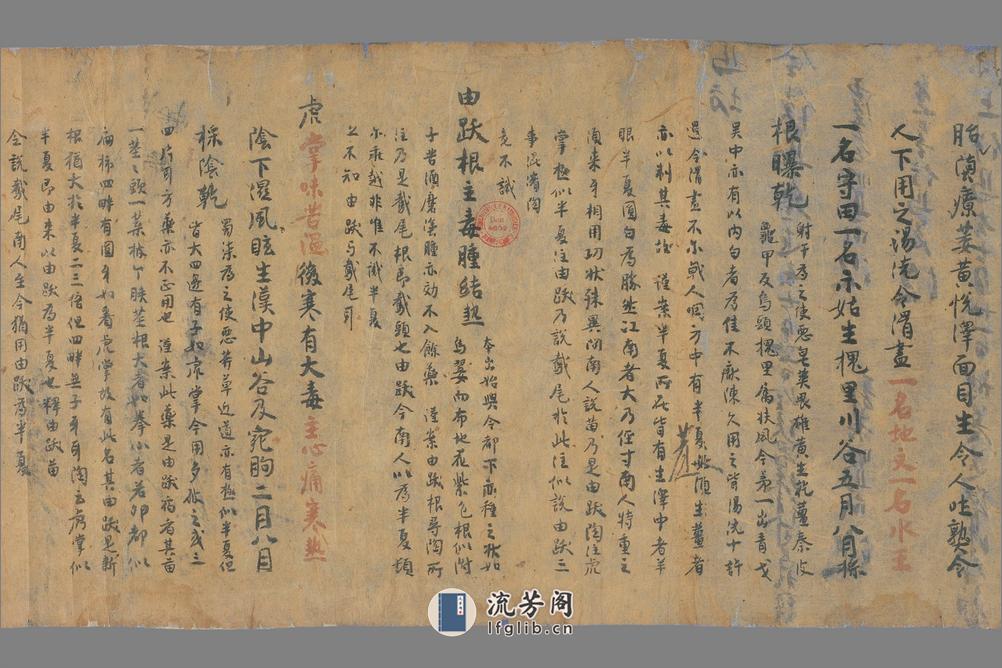 胎漬療萎黃悅澤面目生令人吐熟令
人下用之湯洗令滑盡一名地文一名水玉
一名守田一名示姑生槐里川谷五月八月採
根曝乾 射干為之使惡皂莢畏雄黃生乾薑秦皮
龜甲及烏頭槐里屬扶風今第一出青
吳中亦有以肉白者為佳不厭陳久用之皆湯洗十許
過令滑盡不尓戟人咽方中有半夏必須生薑者
亦以制其毒故 謹案半夏所在皆有生澤中者羊
眼半夏圓白為勝然江南者大乃徑寸南人特重之
頃來互相用功狀殊異問南人說苗乃是由跋陶注虎
掌極似半夏注由跋乃說鳶尾於此注似說由跋三
事混淆陶
竟不識
由跋根主毒腫結熱 本出始興今都下亦種之狀如
烏翣而布地花紫色根似附
子苦酒磨塗腫亦効不入餘藥 謹案由跋根尋陶所
注乃是鳶尾根即鳶頭也由跋今南人以為半夏頓
尓乖越非惟不識半夏
亦不知由跋与鳶尾耳
虎掌味苦溫後寒有大毒主心痛寒熱
陰下濕風眩生漢中山谷及宛朐二月八月
採陰乾 蜀漆為之使惡莽草近道亦有極似半夏但
皆大四邊有子如虎掌今用多破之或三
四片尓方藥亦不正用也 謹案此藥是由跋宿者其苗
一莖莖頭一葉枝丫脥莖根大者如拳小者若卵都似
扁柿四畔有圓牙如看虎掌故有此名其由跋是新
根猶大於半夏二三倍但四畔無子牙耳陶云虎掌似
半夏即由來以由跋為半夏也釋由跋苗
全說鳶尾南人至今猶用由跋為半夏
流芳阁
lfglib.cn